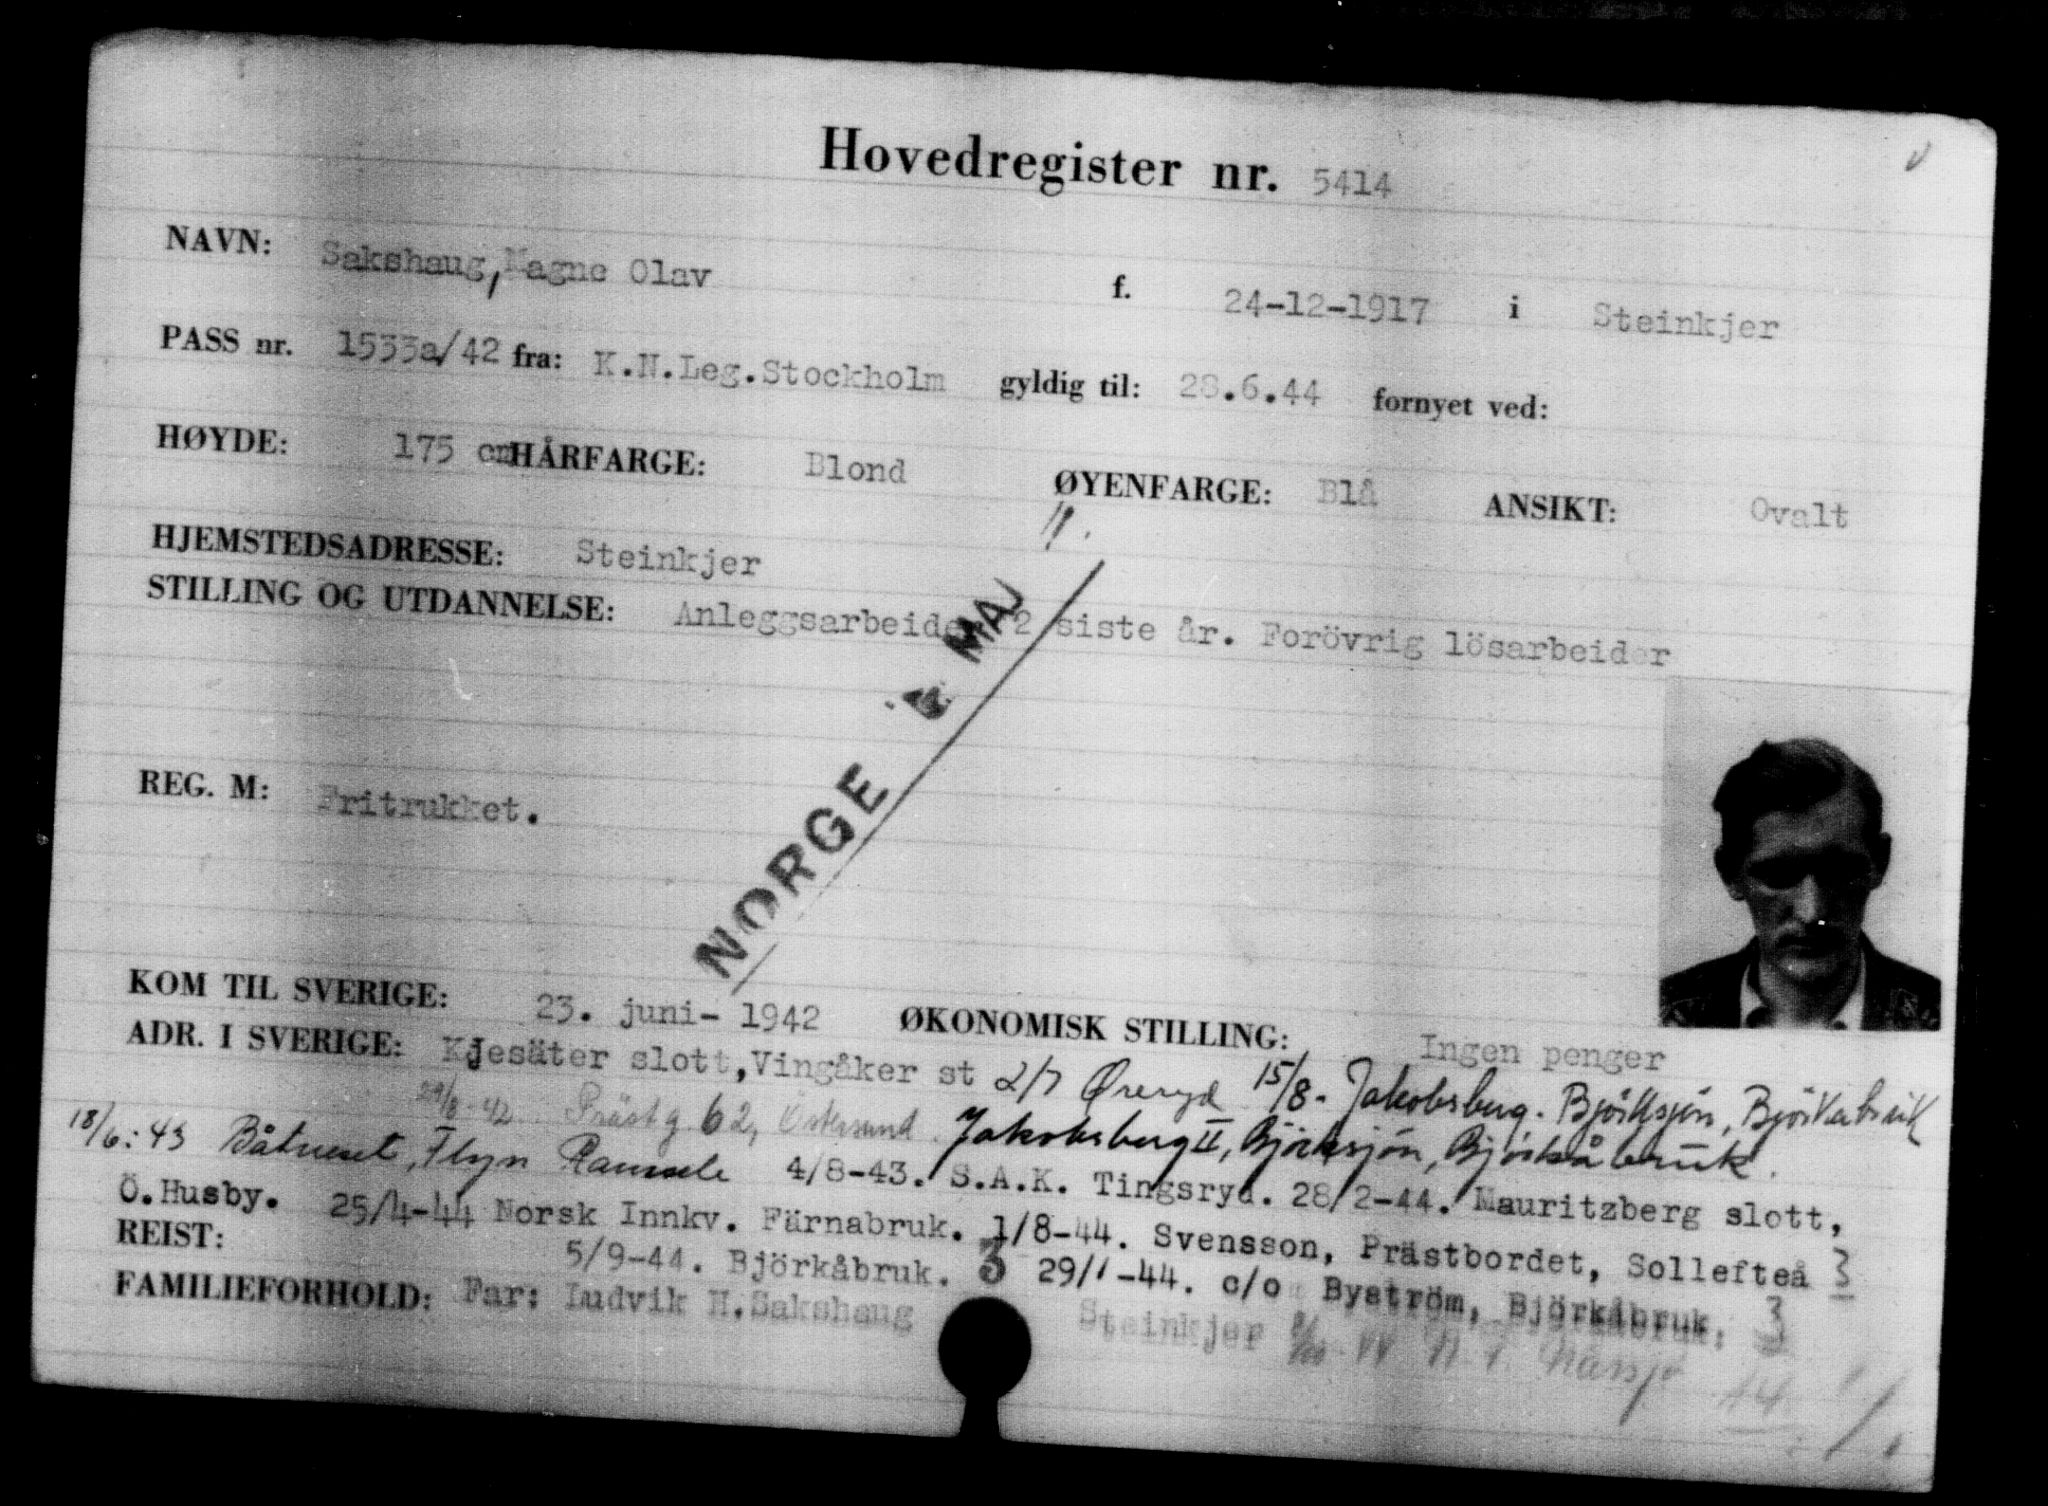 Hovedregister nr. 5414
NAVN: Sakshaug, Magne Olav f. 24-12-1917 i Steinkjer
PASS nr. 1533a/42 fra: K.N.Leg.Stockholm gyldig til: 28.6.44 fornyet ved:
HØYDE: 175 cm HÅRFARGE: Blond ØYENFARGE: Blå ANSIKT: Ovalt
HJEMSTEDSADRESSE: Steinkjer
STILLING OG UTDANNELSE: Anleggsarbeider 2 siste år. Forövrig lösarbeider
NORGE MAJ
REG. M: Fritrukket.
KOM TIL SVERIGE: 23. juni- 1942 ØKONOMISK STILLING: Ingen penger
ADR. I SVERIGE: Kjesäter slott, Vingåker st 2/7 Øreryd 15/8- Jakobsberg. Björksjön, Björkabruk
29/8-42 Prästg 62, Östersund. Jakobsberg II, Björksjön, Björkåbruk.
18/6:43 Båtneset, Flyn Ramsele 4/8-43. S.A.K. Tingsryd. 28/2-44. Mauritzberg slott,
Ö.Husby. 25/4-44 Norsk Innkv. Färnabruk. 1/8-44. Svensson, Prästbordet, Sollefteå 3
REIST: 5/9-44. Björkåbruk. 3 29/1-44. c/o Byström, Björkåbruk. 3
FAMILIEFORHOLD: Far: Ludvik H.Sakshaug Steinkjer